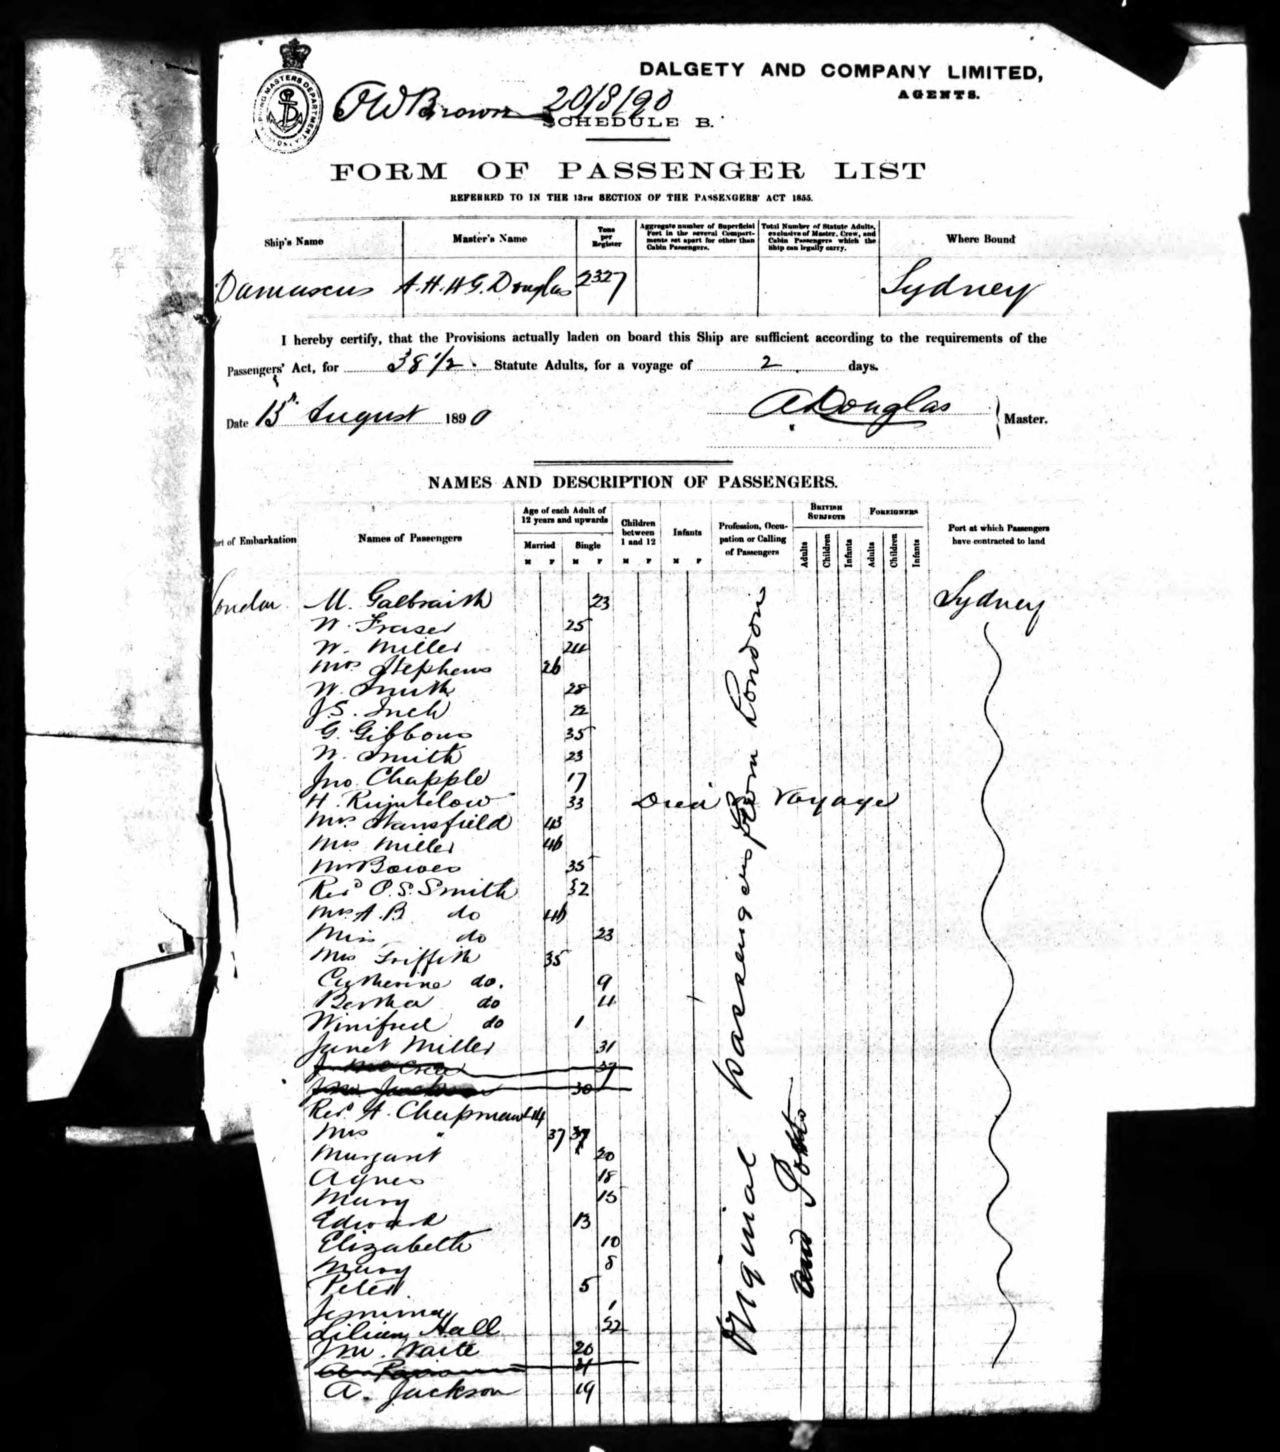 DALGETY AND COMPANY LIMITED,
AGENTS.
MASTERS DEPARTMENT
Brown 20/8/90
SCHEDULE B.
FORM OF PASSENGER LIST
REFERRED TO IN THE 13TH SECTION OF THE PASSENGERS' ACT 1855.
Ship's Name Master's Name Tons per Register Aggregate number of Superficial Feet in the several Compartments set apart for other than Cabin Passengers. Total Number of Statute Adults, exclusive of Master, Crew, and Cabin Passengers which the Ship can legally carry. Where Bound
Damascus A.H.H.G. Douglas 2327 Sydney
I hereby certify, that the Provisions actually laden on board this Ship are sufficient according to the requirements of the
Passengers' Act, for 38 1/2 Statute Adults, for a voyage of 2 days.
A Douglas
Date August 1890 Master.
NAMES AND DESCRIPTION OF PASSENGERS.
rt of Embarkation Names of Passengers Age of each Adult of 12 years and upwards Children between 1 and 12 Infants Profession, Occupation or Calling of Passengers BRITISH SUBJECTS FOREIGNERS Port at which Passengers have contracted to land
Married Single
M F M F M F M F Adults Children Infants Adults Children Infants
London M. Galbraith 23 Sydney
W. Fraser 25
W. Miller 24
Mrs Stephens 26
W. Smith 28
J.S. Inch 22
G. Gibbons 35
W. Smith 23
Jno. Chapple 17
H. 33 Died on Voyage
Mrs Stansfield 43
Mrs Miller 46
Mr Bowes 35
Revd P.S. Smith 32
Mrs A.B do
Miss do 23
Mrs Griffith 35
Catherine do. 9
Bertha do 11
Winifred do 1
Janet Miller 31
39
Jackson 30
Revd H. Chapman 44
Mrs " 37
Margaret 20
Agnes 18
Mary 15
Edward 13
Elizabeth 10
Mary 8
Peter 5
Jemima 1
Lilian Hall 22
Jno. Waite 20
21
A. Jackson 19
Original passengers from London
and Ports